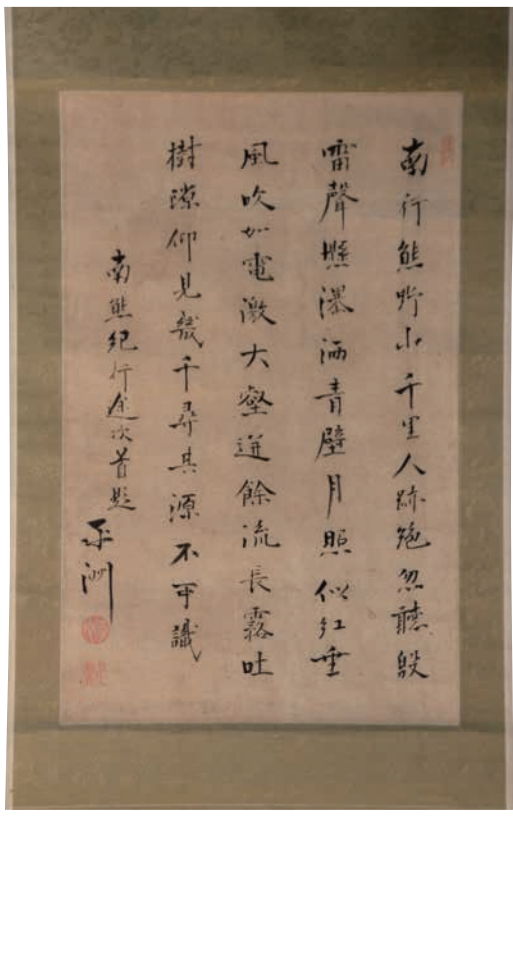 南行熊野山千里人跡絶忽聽殷
雷聲懸瀑洒青壁月照似虹垂
風吹如電激大壑迸餘流長霧吐
樹隙仰見幾千尋其源不可識
南熊紀行途次首題
玉洲